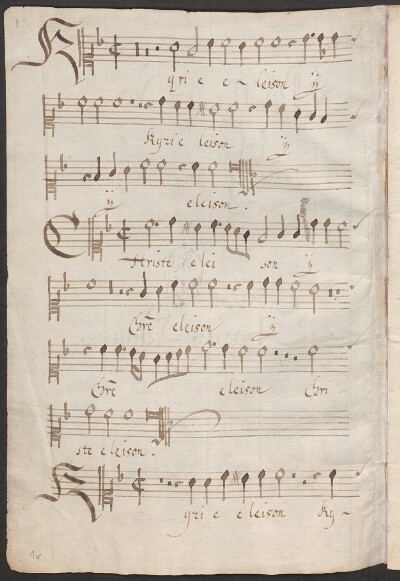 Kyri e e - leison ÿ
Kyri e leison ÿ
ÿ eleison.
Christe elei son ÿ
Chrē eleison ÿ
Chrē eleison Chri
ste eleison.
Kyri e eleison Ky-
1v